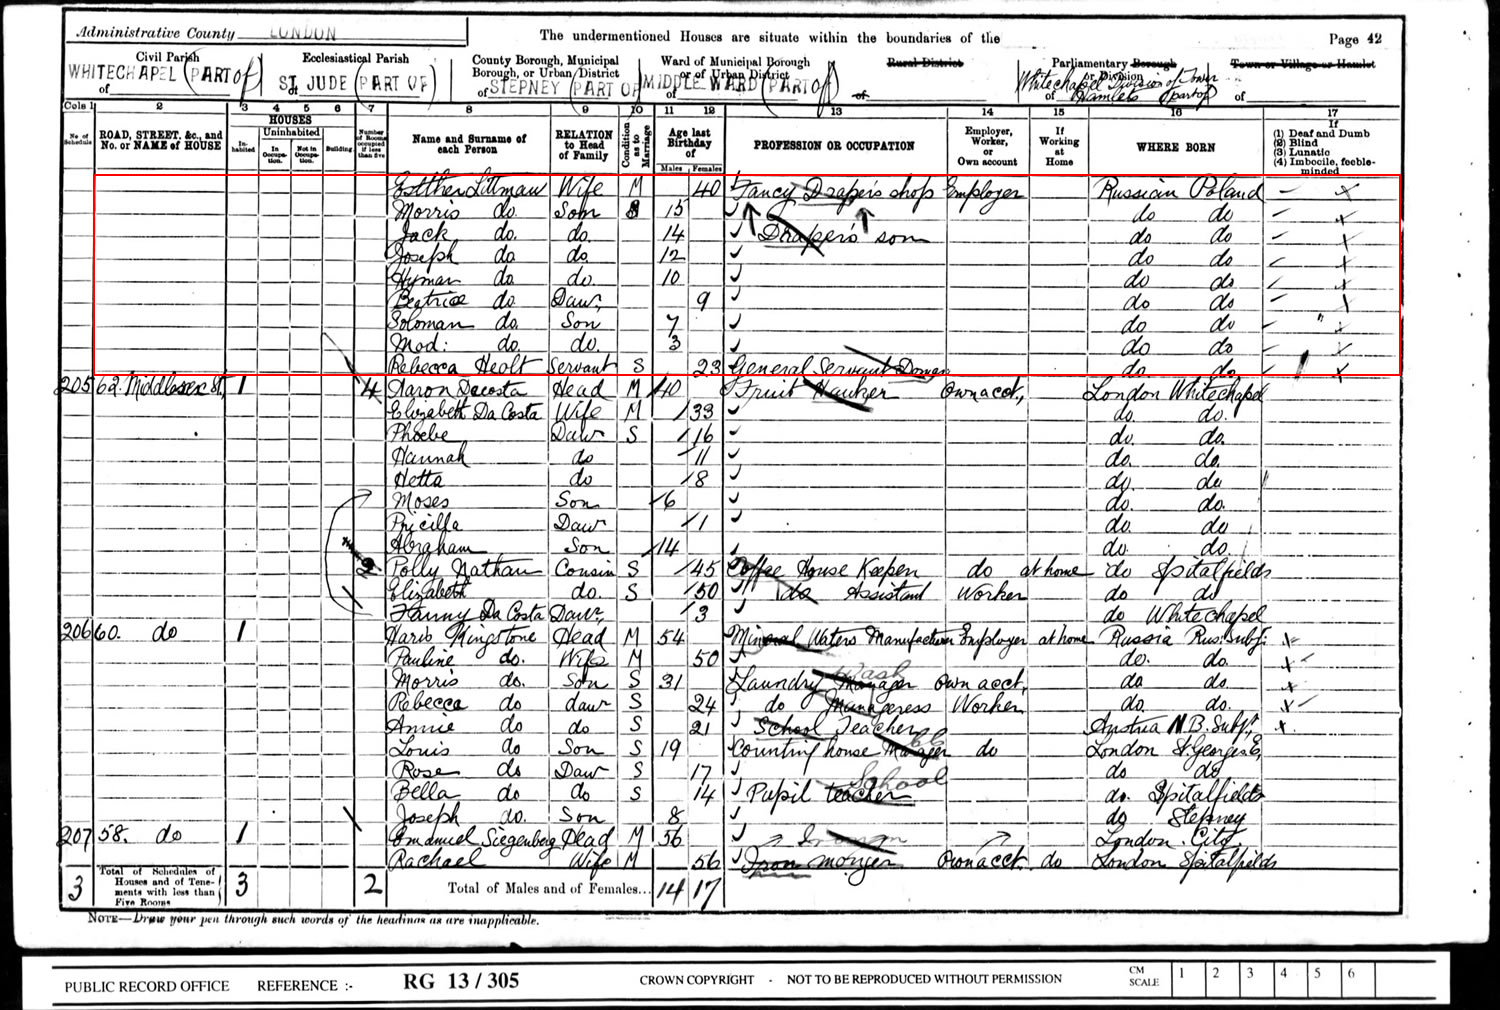 Administrative County LONDON The undermentioned Houses are situate within the boundaries of the Page 42
Civil Parish Ecclesiastical Parish County Borough, Municipal Borough, or Urban District Ward of Municipal Borough or of Urban District Rural District Parliamentary Borough or Division Town or Village or Hamlet
of WHITECHAPEL (PART OF) St JUDE (PART OF) of STEPNEY (PART OF MIDDLE WARD (PART OF) of of Whitechapel Division of Tower Hamlets (part of) of
Cols 1 2 3 4 5 6 7 8 9 10 11 12 13 14 15 16 17
No. of Schedule ROAD, STREET, &c., and No. or NAME of HOUSE HOUSES Inhabited Uninhabited In Occupation. Not in Occupation. Building. Number of Rooms occupied if less than five Name and Surname of each Person RELATION to Head of Family Condition as to Marriage Age last Birthday of Males Females PROFESSION OR OCCUPATION Employer, Worker, or Own account If Working at Home WHERE BORN If (1) Deaf and Dumb (2) Blind (3) Lunatic (4) Imbecile, feeble-minded
Esther Littman Wife M 40 Fancy Draper's shop Employer Russian Poland
Morris do. Son S 15 do do
Jack do. do. 14 Draper's son do do
Joseph do do 12 do do
Hyman do. do. 10 do do
Beatrice do. Daur, 9 do do
Soloman do. Son 7 do do
Mod: do. do. 3 do do
Rebecca Servant S 23 General Servant do. do.
205 62. Middlesex St, 1 4 Aaron Dacosta Head M 40 Fruit Hawker Own acct., London Whitechapel
Elizabeth Da Costa Wife M 33 do. do.
Phoebe Daur S 16 do. do.
Hannah do 11 do. do.
Hetta do 8 do. do
Moses Son 6 do. do.
Pricilla Daur 1 do. do
Abraham Son 14 do do
Polly Nathan Cousin S 45 Coffee House Keeper do at home do Spitalfields
Elizabeth do. S 50 do Assistant Worker do do
Fanny Da Costa Daur, 3 do Whitechapel
206 60. do 1 Haris Kingstone Head M 54 Mineral Waters Manufacturer Employer at home Russia Rus: Subj:
Pauline do. Wife M 50 do. do.
Morris do. Son S 31 Laundry Manager Wash Own acct, do do.
Rebecca do daur S 24 do Manageress Worker do. do.
Annie do do S 21 School Teacher Austria N.B. Subjt,
Louis do Son S 19 Counting house Manager do London St. Georges E,
Rose do Daur S 17 do do
Bella do do S 14 Pupil teacher School do. Spitalfields
Joseph do. Son 8 do Stepney
207 58. do 1 Emanuel Siegenberg Head M 56 London. City.
Rachael Wife M 56 Iron monger Own acct. do London Spitalfields
3 Total of Schedules of Houses and of Tenements with less than Five Rooms 3 2 Total of Males and of Females... 14 17
NOTE—Draw your pen through such words of the headings as are inapplicable.
PUBLIC RECORD OFFICE REFERENCE :- RG 13 / 305 CROWN COPYRIGHT - NOT TO BE REPRODUCED WITHOUT PERMISSION CM SCALE 1 2 3 4 5 6